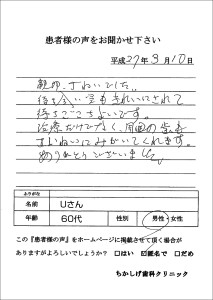 患者様の声をお聞かせ下さい
平成27年3月10日
親切、ていねいでした。
待ち合い室もきれいにされて
待ちごこちよいです。
治療だけでなく、周囲の歯も
ていねいにみがいてくれます。
ありがとうございました
ふりがな
名前 Uさん
年齢 60代 性別 男性・女性
この『患者様の声』をホームページに掲載させて頂く場合が
ありますがよろしいでしょうか？ □はい ☑匿名で □だめ
ちかしげ歯科クリニック